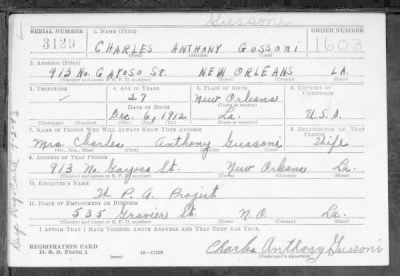 Gussoni
SERIAL NUMBER 1. NAME (Print) ORDER NUMBER
3129 CHARLES ANTHONY GOSSONI 1603
2. ADDRESS (Print)
913 No. GAYOSO St. NEW ORLEANS LA.
3. TELEPHONE 4. AGE IN YEARS 5. PLACE OF BIRTH 6. COUNTRY OF CITIZENSHIP
27 New Orleans
DATE OF BIRTH
Dec. 6, 1912 La. U.S.A.
7. NAME OF PERSON WHO WILL ALWAYS KNOW YOUR ADDRESS 8. RELATIONSHIP OF THAT PERSON
Mrs. Charles Anthony Gussoni Wife
9. ADDRESS OF THAT PERSON
913 No. Gayoso St. New Orleans La.
10. EMPLOYER'S NAME
W. P. A. Project
11. PLACE OF EMPLOYMENT OR BUSINESS
535 Gravier St. N.O. La.
I AFFIRM THAT I HAVE VERIFIED ABOVE ANSWERS AND THAT THEY ARE TRUE.
REGISTRATION CARD
D. S. S. Form 1
Charles Anthony Gussoni